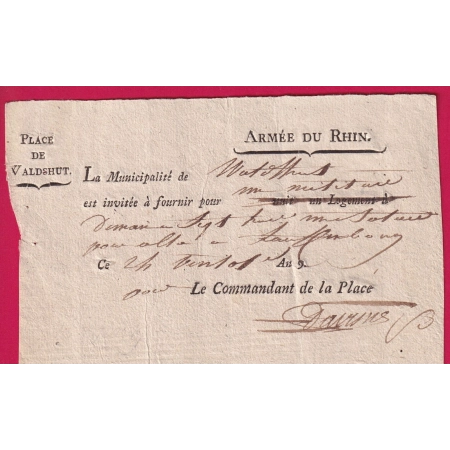 ARMÉE DU RHIN.
PLACE
DE
VALDSHUT.
La Municipalité de Waldshut
un militaire
est invitée à fournir pour nuit un Logement à
Demain a Sept
pour aller a Lauffenbourg
Ce 24 Ventos An 9.
Le Commandant de la Place